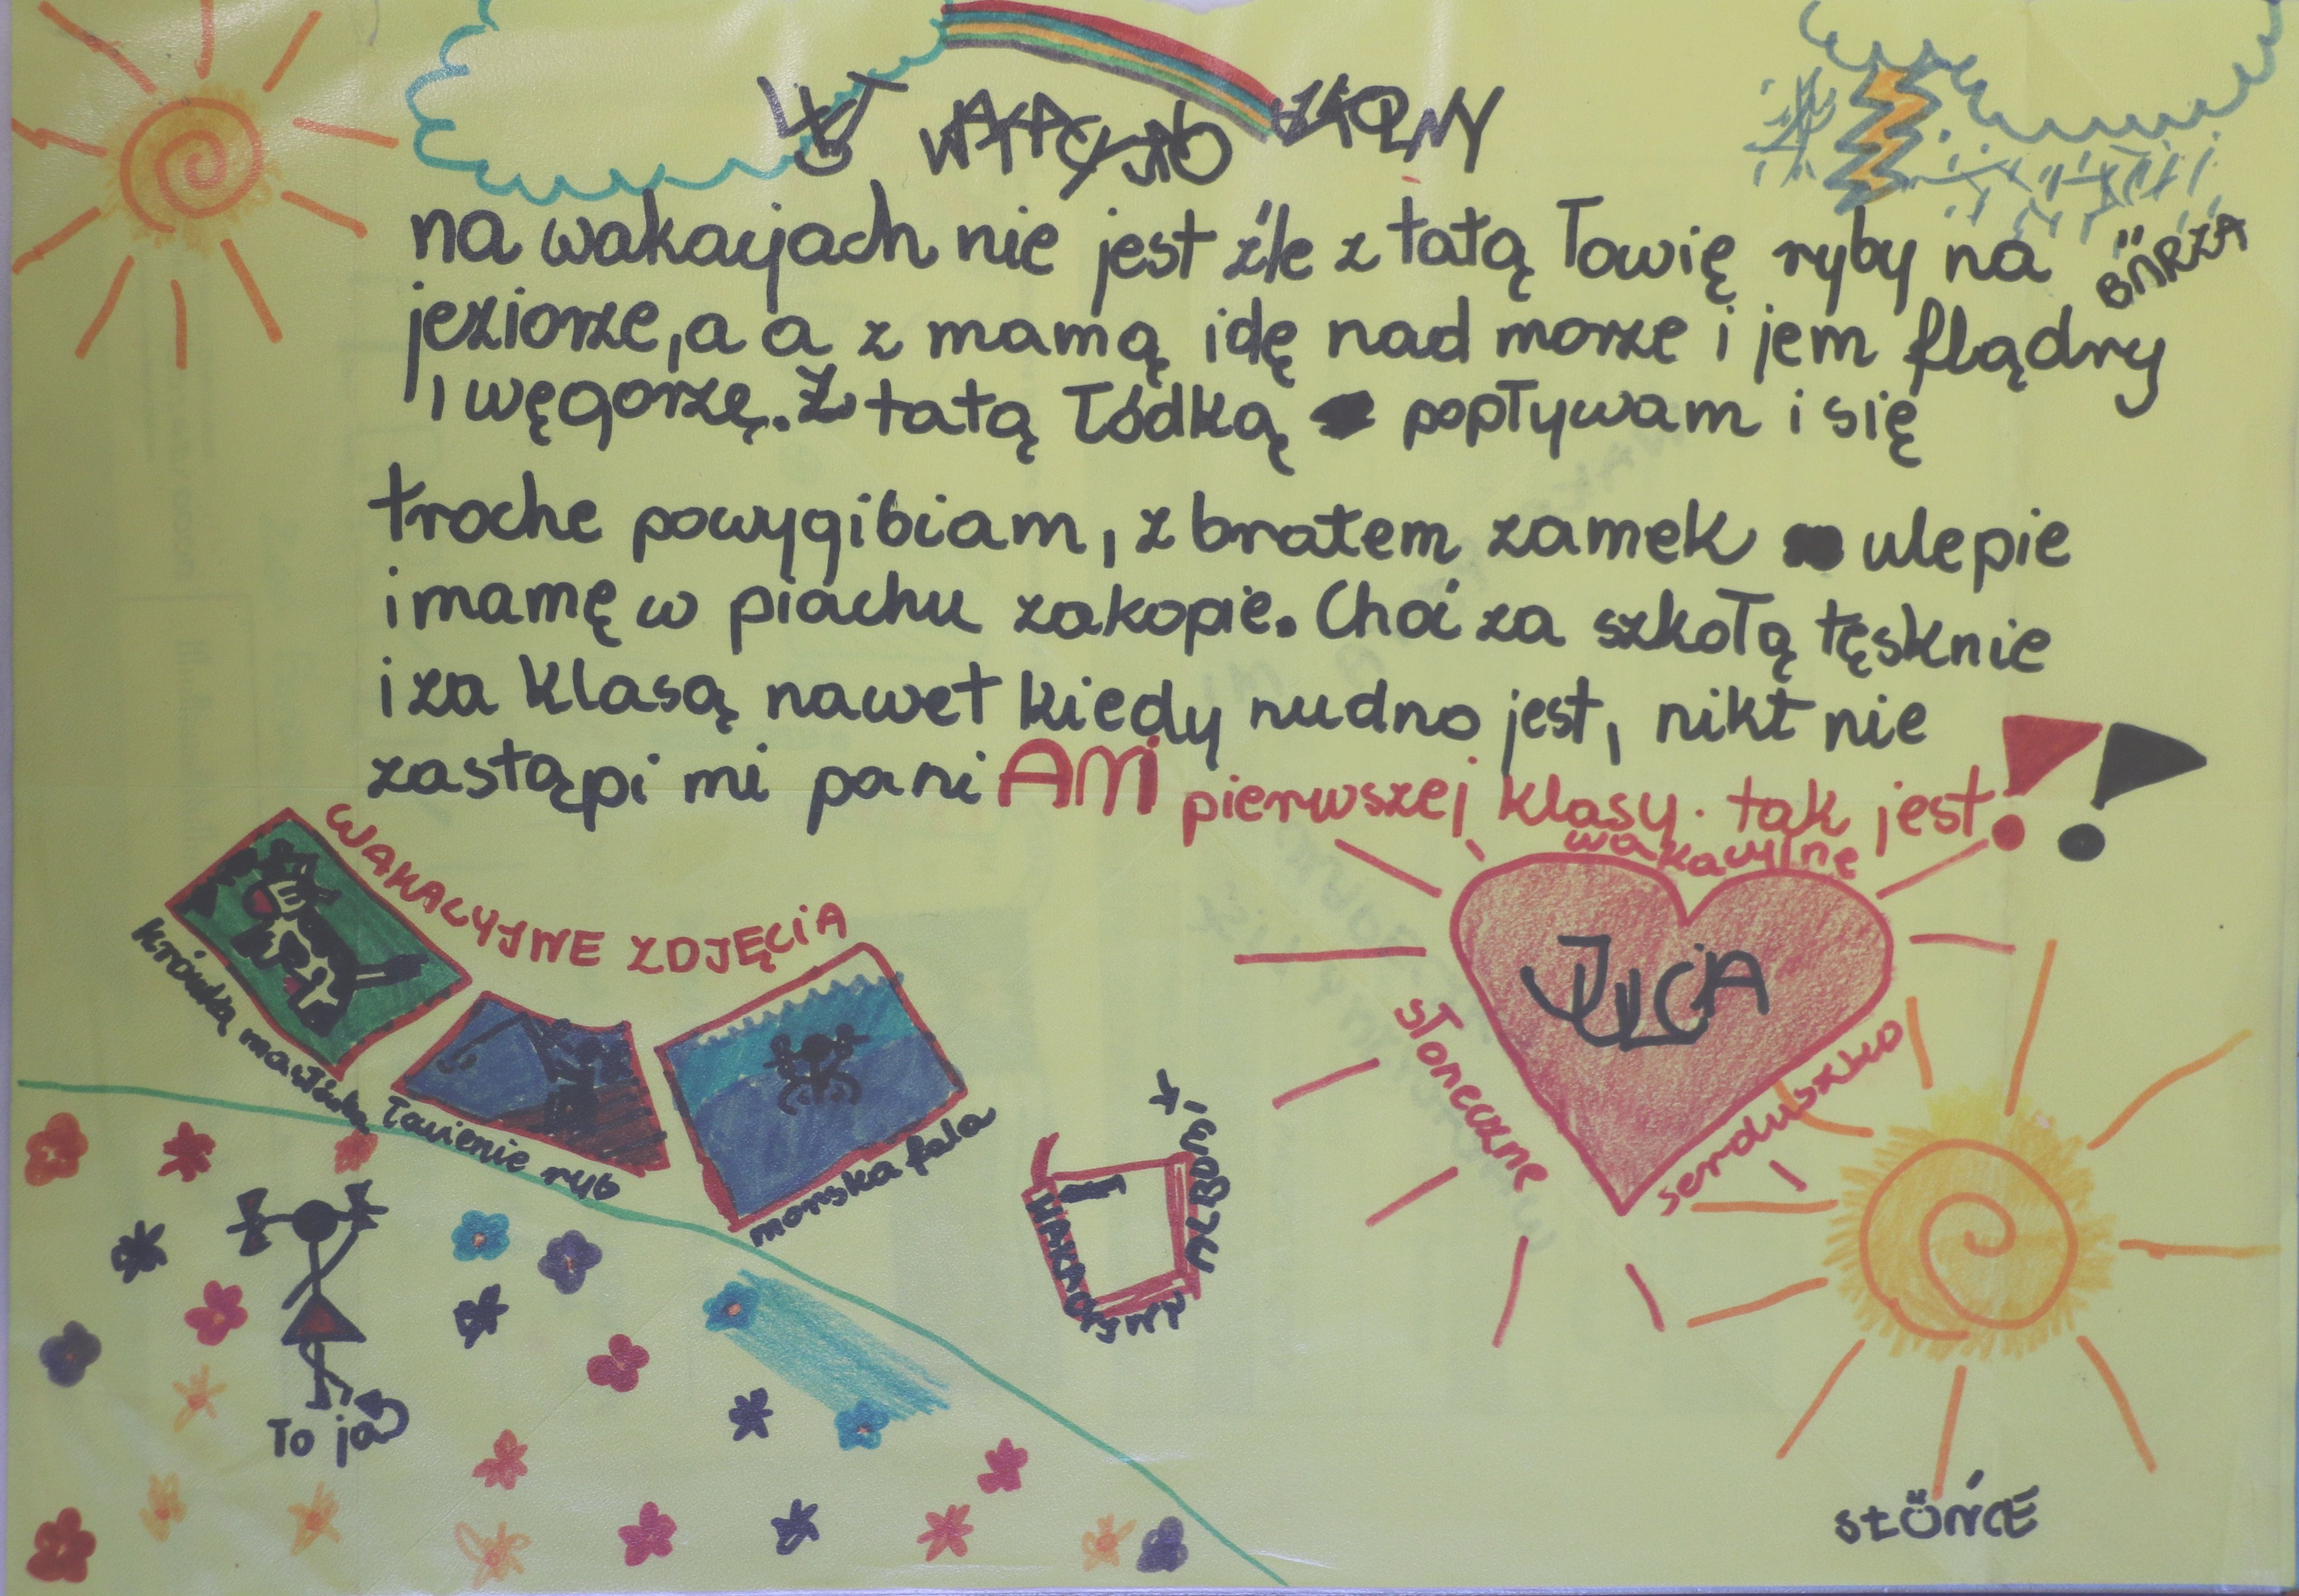 LIST WAKACYJNO SZKOLNY
na wakacjach nie jest źle z tatą łowię ryby na
BÜRZA
jeziorze, a a z mamą idę nad morze i jem flądry
i węgorzę. Z tatą łódką popływam i się
troche powygibiam, z bratem zamek ulepie
i mamę w piachu zakopie. Choć za szkołą tęsknie
i za klasą nawet kiedy nudno jest, nikt nie
zastąpi mi pani AM pierwszej klasy. tak jest!!
WAKACYJNE ZDJĘCIA
krówką mućką
łowienie ryb
morska fala
wakacyjne
JULCIA
słoneczne
serduszko
WAKACYJNY
ALBUM
To ja
SŁÖŃCE